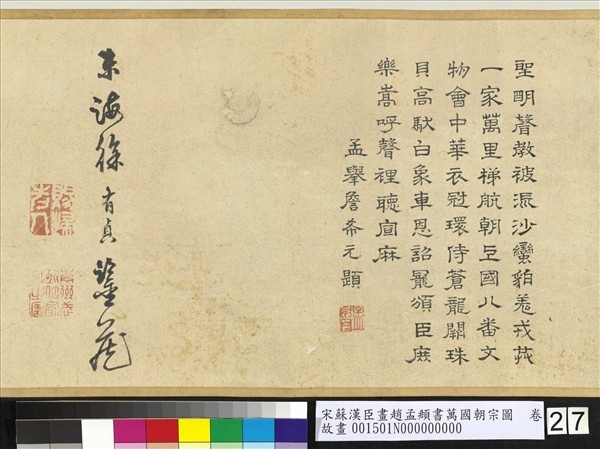 聖明聲教被流沙蠻貊羌戎共
一家萬里梯航朝王國八番文
物會中華衣冠環侍蒼龍闕珠
貝高馱白象車恩詔罷頒臣庶
樂嵩呼聲裡聽宣麻
孟舉詹希元題
東海徐有貞鑒藏
宋蘇漢臣畫趙孟頫書萬國朝宗圖 卷
故畫 001501N000000000
27